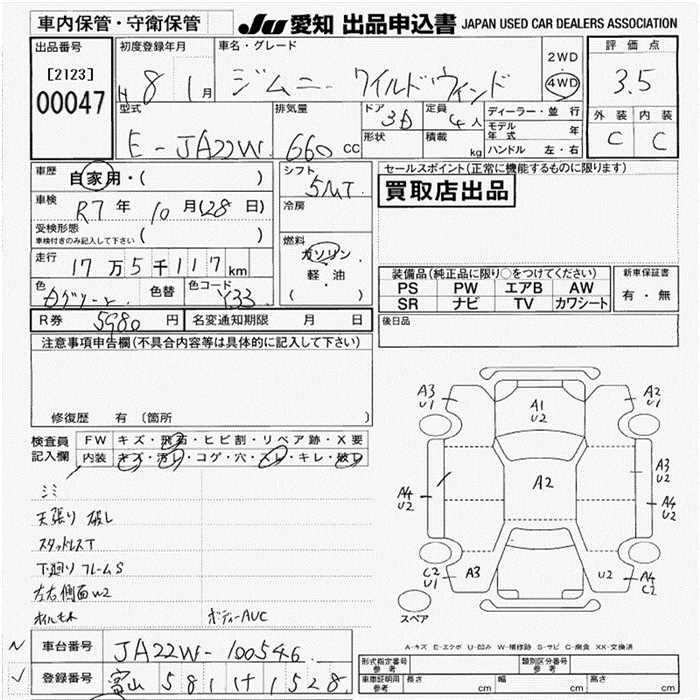 車内保管・守衛保管
JU 愛知 出品申込書 JAPAN USED CAR DEALERS ASSOCIATION
出品番号
[2123]
00047
初度登録年月
H 8 1月
車名・グレード
ジムニー ワイルドウィンド
2WD
4WD
評価点
3.5
外装 内装
C C
型式
E-JA22W
排気量
660 cc
ドア
3D
形状
定員
4人
積載
kg
ディーラー・並行
モデル年式 年
ハンドル 左・右
車歴
自家用・( )
車検
R7年 10月(28日)
受検形態
車検付きのみ記入して下さい ( )
走行
17万5千117km
色
色替
色コード
Y33
シフト
5MT
冷房
燃料
ガソリン
軽・油
( )
セールスポイント(正常に機能するものに限ります)
買取店出品
装備品(純正品に限り○をつけてください)
PS PW エアB AW
SR ナビ TV カワシート
新車保証書
有・無
R券 5980円 名変通知期限 月 日
後日品
注意事項申告欄(不具合内容等は具体的に記入して下さい)
修復歴 有 〔箇所
検査員記入欄
FW キズ・飛石・ヒビ割・リペア跡・X要
内装 キズ・汚レ・コゲ・穴・スレ・キレ・破レ
シミ
天張り 破レ
スタッドレスT
下廻り フレームS
左右側面W2
オイルモレ
ボディーAUC
A3
U1
A1
U2
A2
U1
A2
A4
U2
A3
U2
A4
U2
C2
U1
A3
U2
A4
C2
スペア
A-キズ E-エクボ U-凹み W-補修跡 S-サビ C-腐食 XX-交換済
車台番号 JA22W-100546
登録番号 富山 581 け 1528
形式指定番号
参考
類別区分番号
参考
車庫証明用
参考
長さ cm 幅 cm 高さ cm